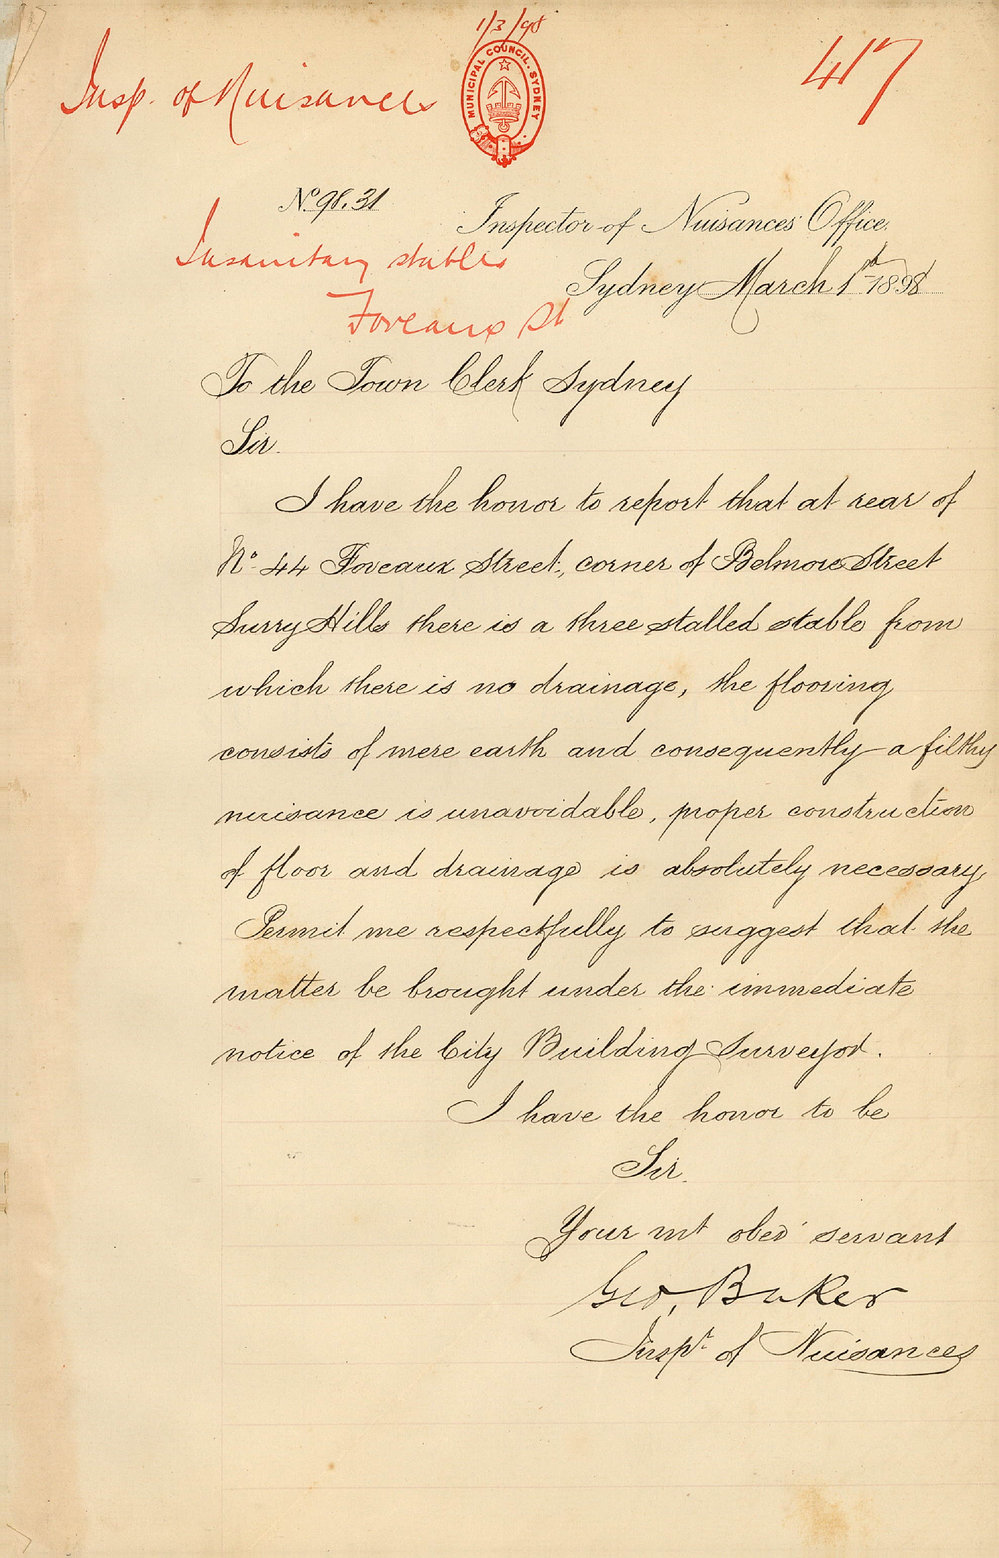 1/3/98
Insp. of Nuisances
417
MUNICIPAL COUNCIL. SYDNEY
No. 98.31
Inspector of Nuisances' Office.
Insanitary stables
Foveaux St
Sydney March 1st 1898
To the Town Clerk Sydney
Sir.
I have the honor to report that at rear of
No. 44 Foveaux Street, corner of Belmore Street
Surry Hills there is a three stalled stable from
which there is no drainage, the flooring
consists of mere earth and consequently a filthy
nuisance is unavoidable, proper construction
of floor and drainage is absolutely necessary
Permit me respectfully to suggest that the
matter be brought under the immediate
notice of the City Building Surveyor.
I have the honor to be
Sir.
Your mt obed' servant
Geo, Baker
Inspt. of Nuisances